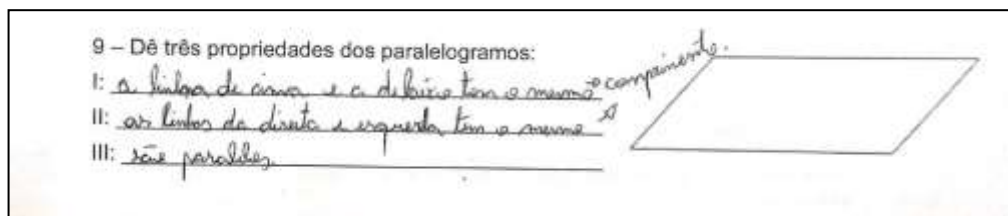 9 – Dê três propriedades dos paralelogramos:
I: a linha de cima e a debaixo tem o mesmo comprimento.
II: as linhas da direita e esquerda tem o mesmo
III: são paralelas.